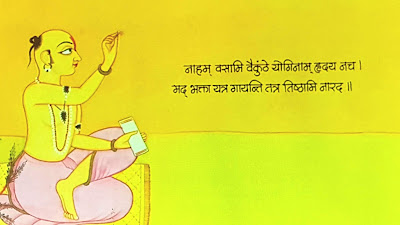 नाहम् वसामि वैकुंठे योगिनाम् ह्रदय नच ।
मद् भक्ता यत्र गायन्ति तत्र तिष्ठामि नारद ॥